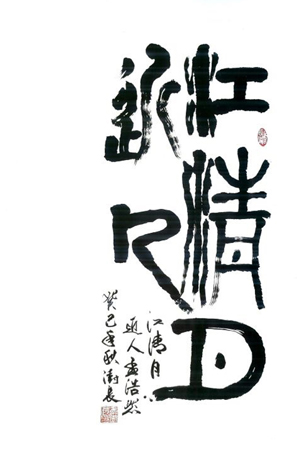 江清月
近人
江清月
近人孟浩然
癸巳年秋